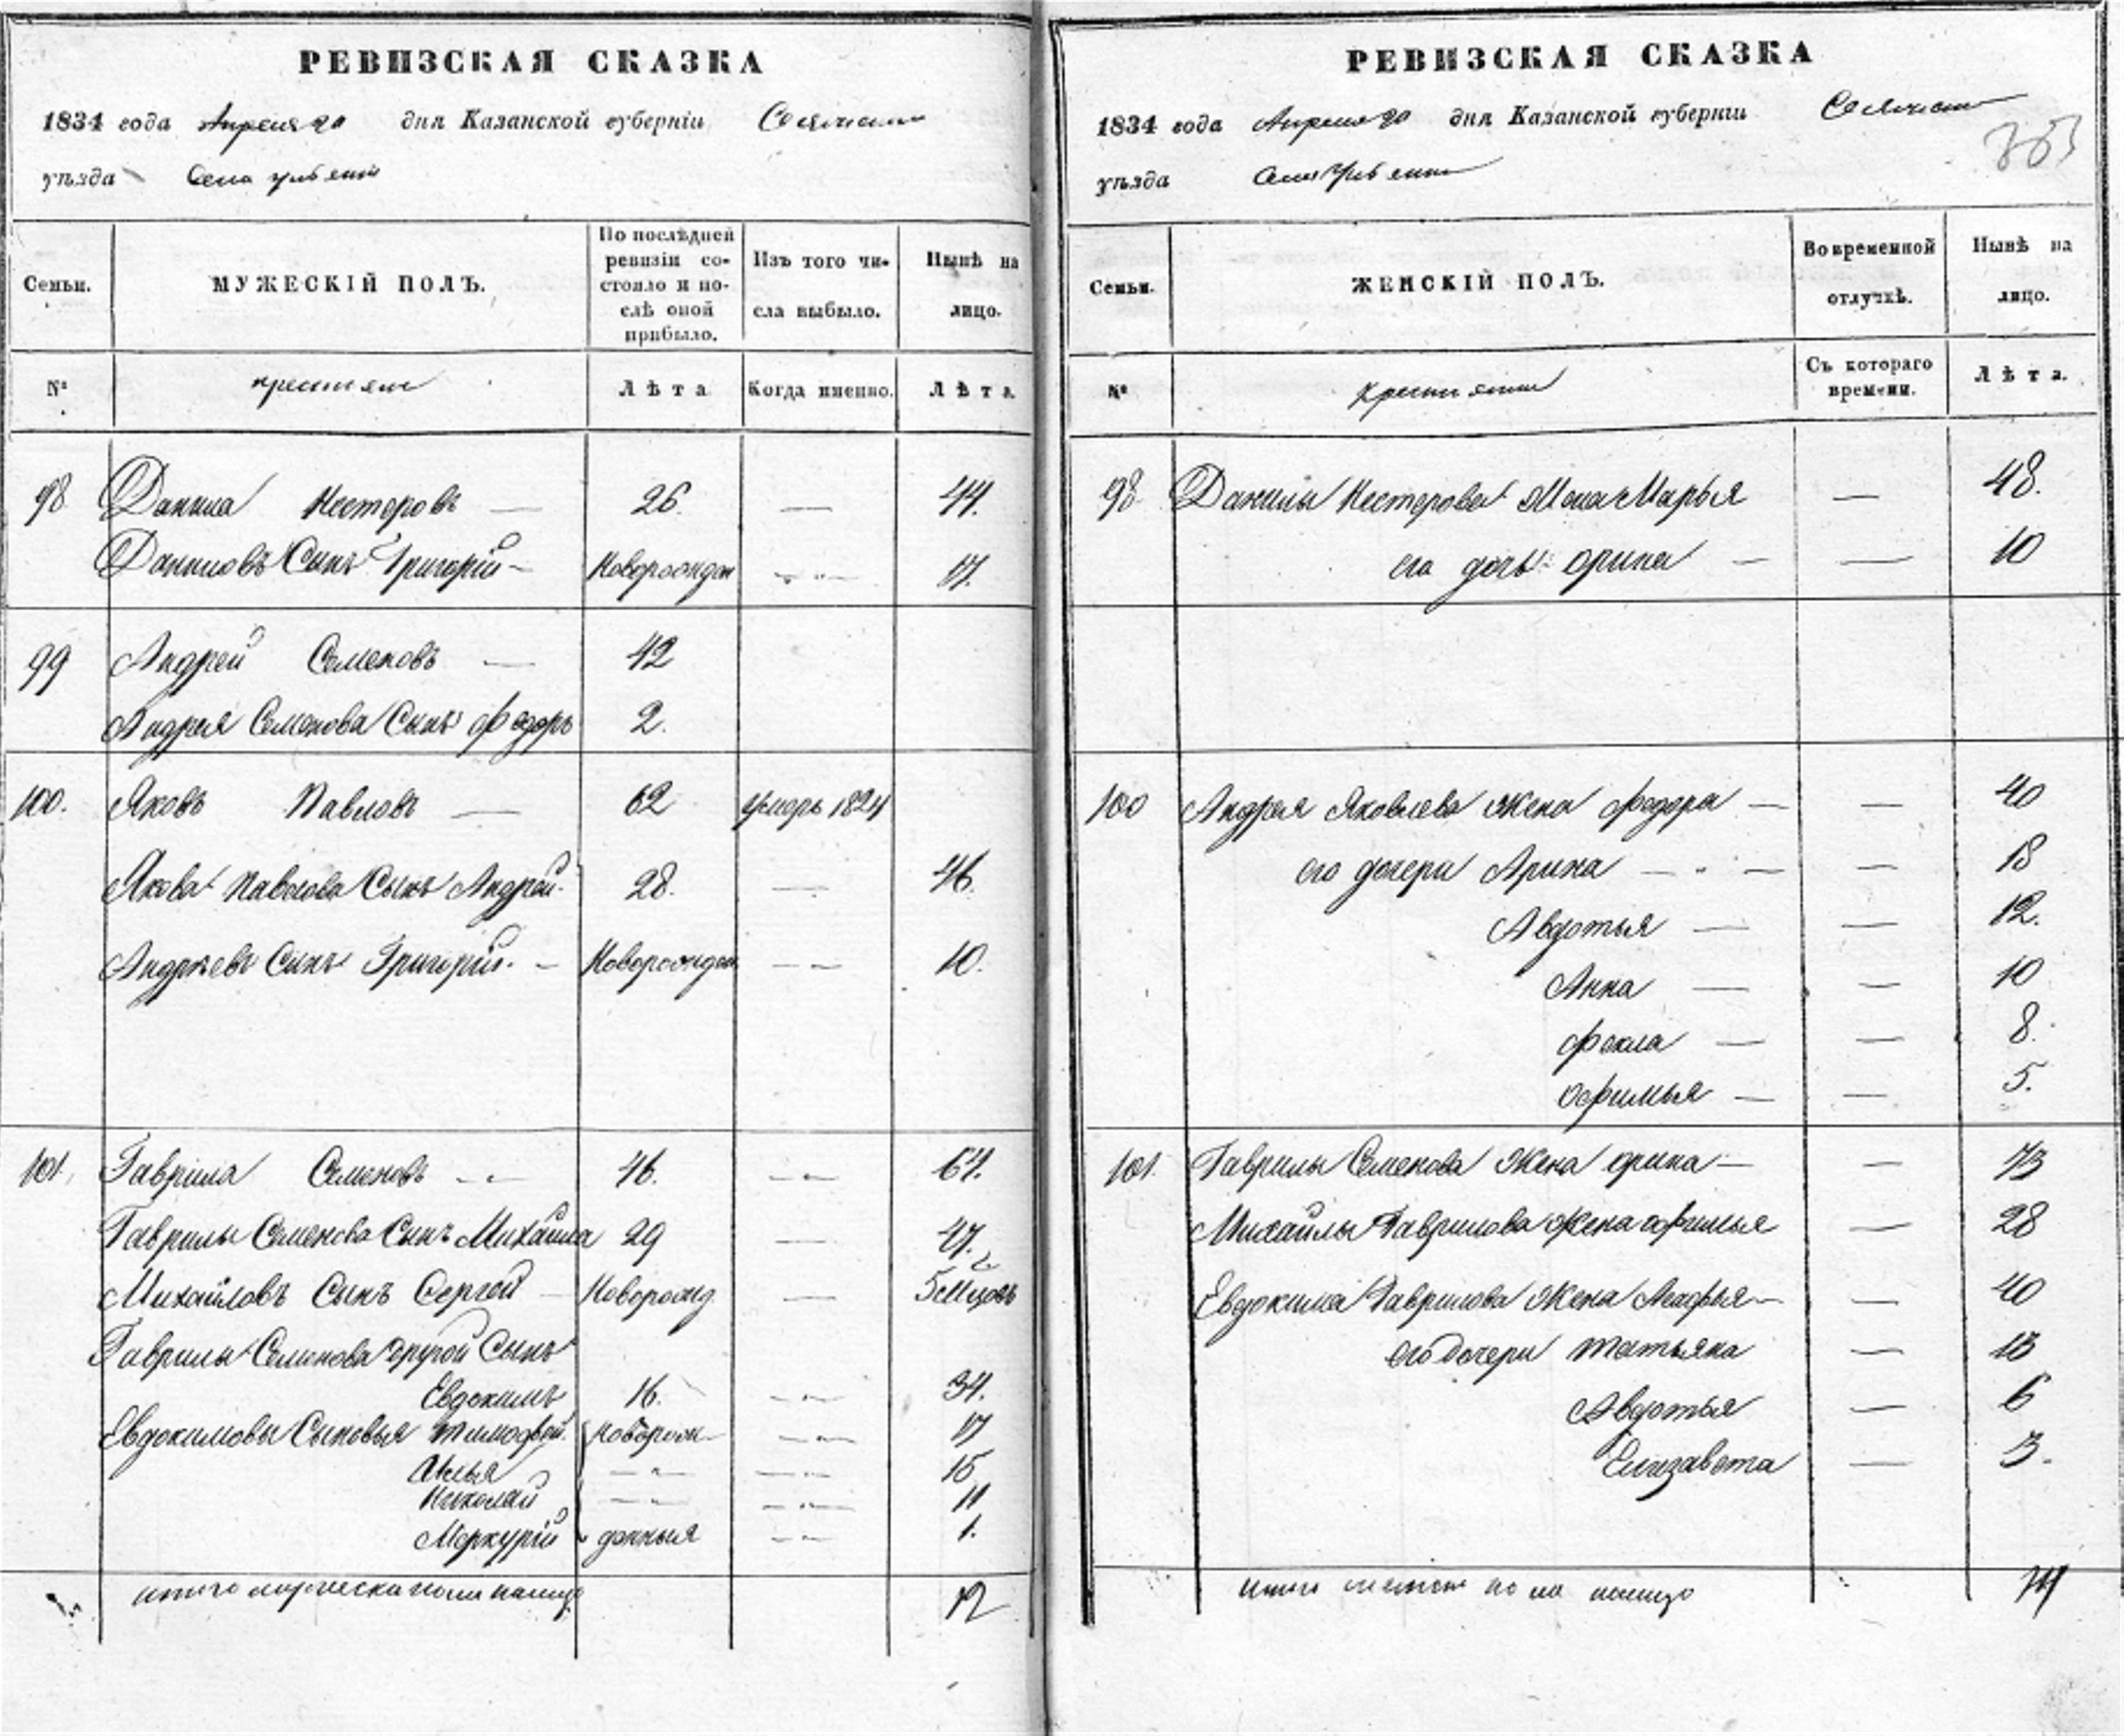 РЕВИЗСКАЯ СКАЗКА
1834 года Апреля 20 дня Казанской губерніи
уѣзда Села
Семьи.
МУЖЕСКІЙ ПОЛЪ.
По послѣдней ревизіи состояло и послѣ оной прибыло.
Изъ того числа выбыло.
Нынѣ на лицо.
№
крестьяне
Лѣта
Когда именно.
Лѣта.
98 Данила Нестеровъ — 26. — 44.
Даниловъ Сынъ Григорій — Новорожден 17.
99 Андрей Семеновъ — 42
Андрея Семенова Сынъ Федоръ 2.
100. Яковъ Павловъ — 62 умеръ 1824
Якова Павлова Сынъ Андрей. 28. — 46.
Андреевъ Сынъ Григорій. — Новорожден — 10.
101. Гаврила Семеновъ 46. 64.
Гаврилы Семенова Сынъ Михайла 29 — 47.
Михайловъ Сынъ Сергей — Новорожд — 5 Мцовъ
Гаврилы Семенова другой Сынъ
Евдокимъ 16. 34.
Евдокимовы Сыновья Тимофей Новорож- 17
Илья 15
Николай 11
Меркурій денныя 1.
итого мужеска пола налицо 12
РЕВИЗСКАЯ СКАЗКА
1834 года Апреля 20 дня Казанской губерніи
уѣзда Села
Семьи.
ЖЕНСКІЙ ПОЛЪ.
Во временной отлучкѣ.
Нынѣ на лицо.
№
крестьяне
Съ котораго времени.
Лѣта.
98 Данилы Нестерова Жена Марья — 48.
его дочь Орина — — 10
100 Андрея Яковлева Жена Федора — — 40
его дочери Арина — 18
Авдотья — — 12.
Анна — — 10
Фекла — — 8.
Офимья — — 5.
101. Гаврилы Семенова Жена Орина — — 73
Михайлы Гаврилова Жена Офимья — 28
Евдокима Гаврилова Жена Агафья — — 40
его дочери Татьяна — 13
Авдотья — 6
Елизавета — 3.
итого женска пола налицо 14